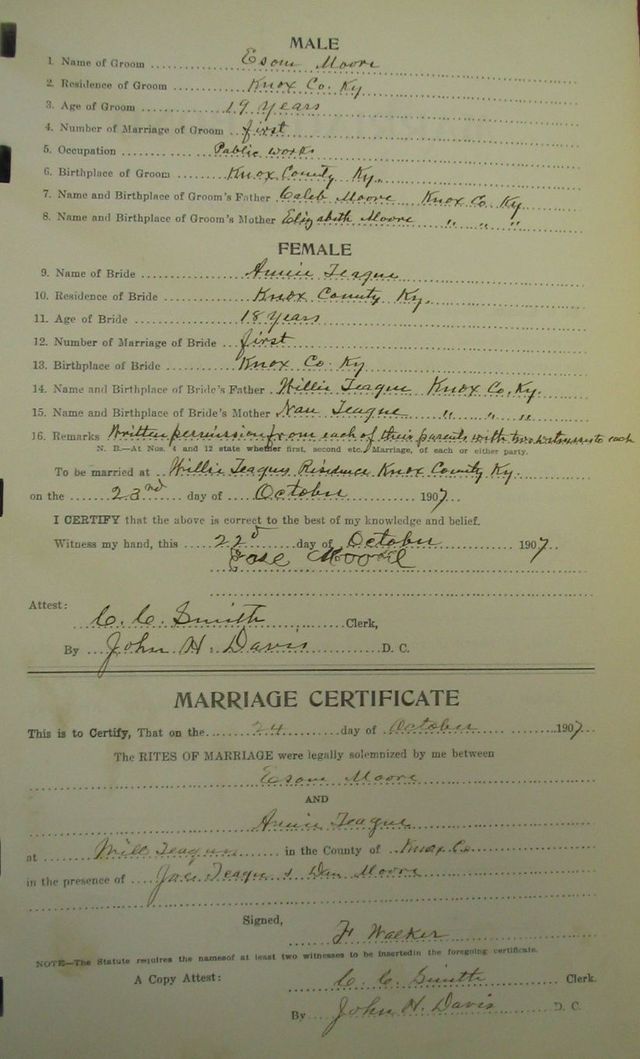 MALE
1. Name of Groom Esom Moore
2. Residence of Groom Knox Co. Ky
3. Age of Groom 19 Years
4. Number of Marriage of Groom first
5. Occupation Public works
6. Birthplace of Groom Knox County Ky.
7. Name and Birthplace of Groom's Father Caleb Moore Knox Co. Ky
8. Name and Birthplace of Groom's Mother Elizabeth Moore " " "
FEMALE
9. Name of Bride Annie Teague
10. Residence of Bride Knox County Ky.
11. Age of Bride 18 Years
12. Number of Marriage of Bride first
13. Birthplace of Bride Knox Co. Ky
14. Name and Birthplace of Bride's Father Willie Teague Knox Co. Ky.
15. Name and Birthplace of Bride's Mother Nan Teague " " "
16. Remarks Written permission from each of their parents with two witnesses to each
N. B.—At Nos. 4 and 12 state whether first, second etc., Marriage, of each or either party.
To be married at Willie Teagues Residence Knox County Ky.
on the 23nd day of October 1907
I CERTIFY that the above is correct to the best of my knowledge and belief.
Witness my hand, this 22d day of October 1907
Moore
Attest:
C. C. Smith Clerk,
By John H. Davis D. C.
MARRIAGE CERTIFICATE
This is to Certify, That on the 24 day of October 1907
The RITES OF MARRIAGE were legally solemnized by me between
Esom Moore
AND
Annie Teague
at Will Teagues in the County of Knox Co.
in the presence of Teague & Dan Moore
Signed,
F Walker
NOTE—The Statute requires the namesof at least two witnesses to be insertedin the foregoing certificate.
A Copy Attest: C. C. Smith Clerk.
By John H. Davis D. C.